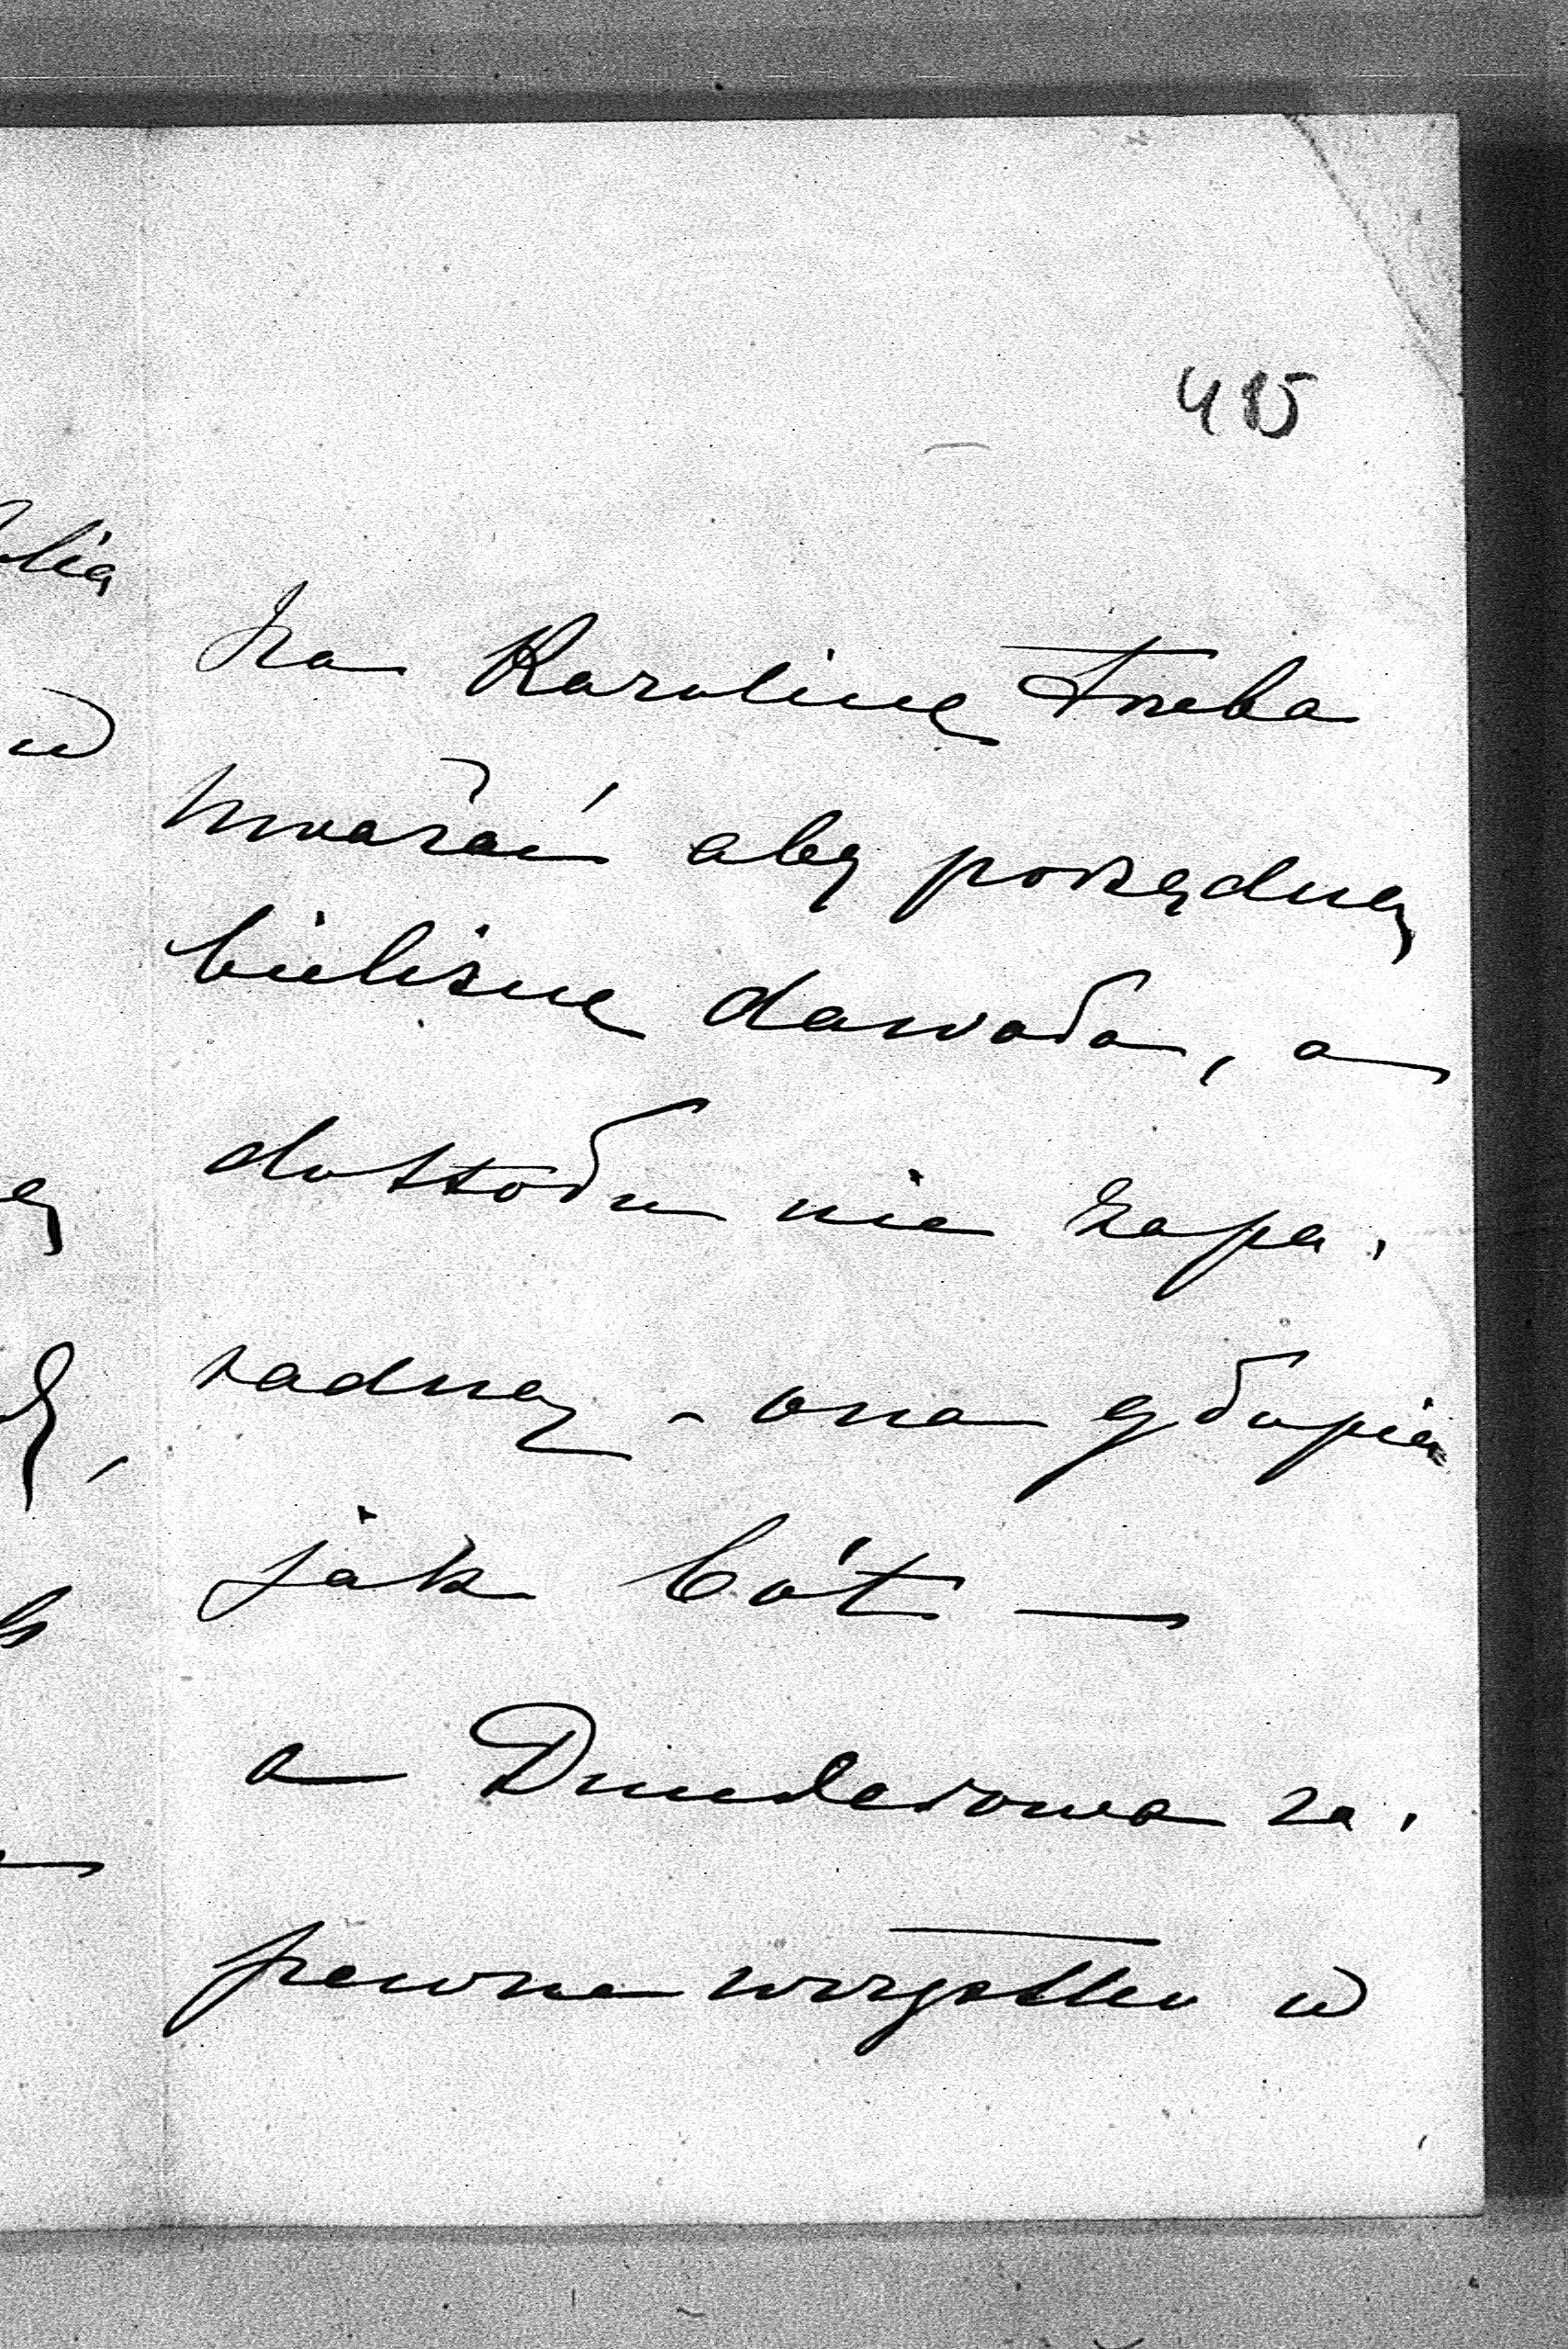 415
Na Karolinę trzeba
uważać aby porządną
bieliznę dawała, a
do stołu nie zapa-
radną - ona głupia
jak bót —
a
za-
pewne wszystko w